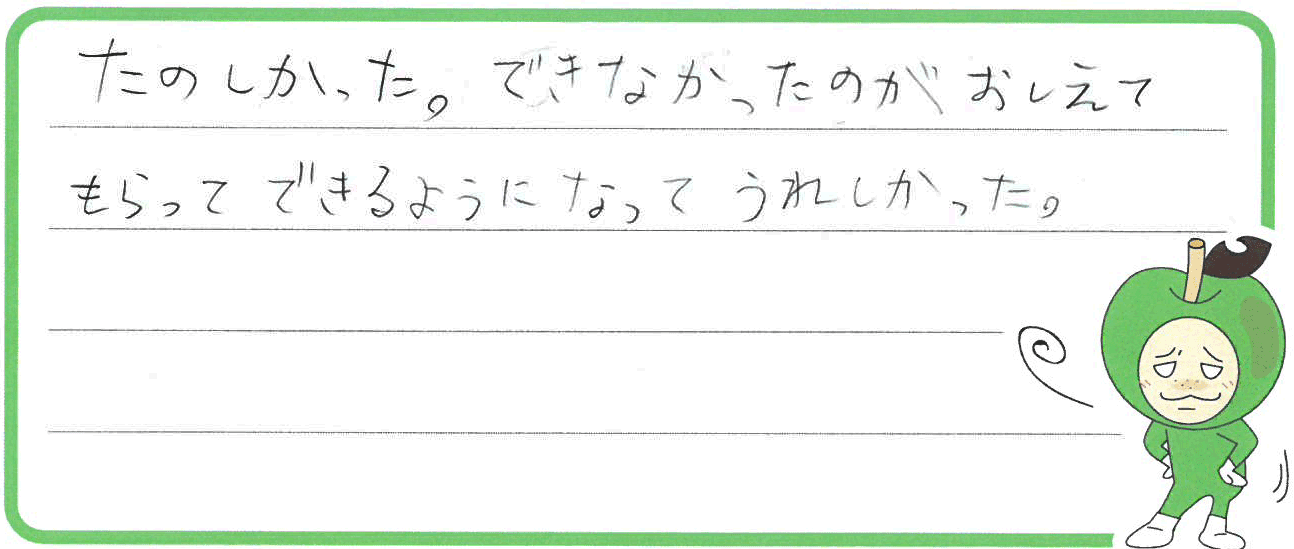 たのしかった。できなかったのが おしえて
もらって できるように なって うれしかった。